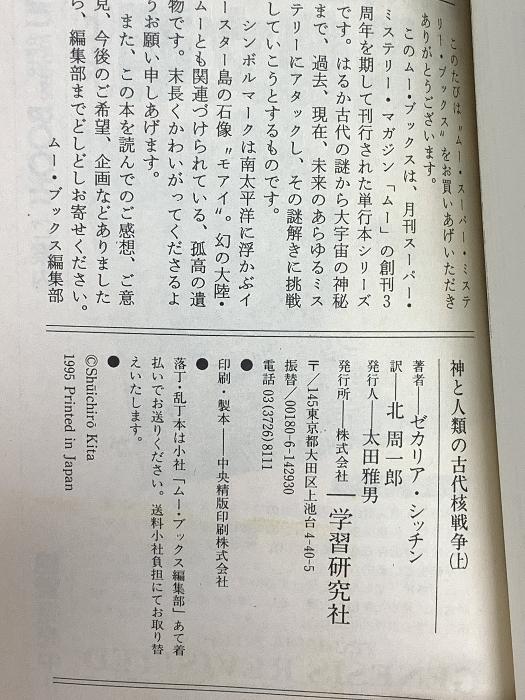 このたびは〝ムー・スーパー・ミステ
リー・ブックス〟をお買いあげいただき
ありがとうございます。
このムー・ブックスは、月刊スーパー・
ミステリー・マガジン「ムー」の創刊3
周年を期して刊行された単行本シリーズ
です。はるか古代の謎から大宇宙の神秘
まで、過去、現在、未来のあらゆるミス
テリーにアタックし、その謎解きに挑戦
していこうとするものです。
シンボルマークは南太平洋に浮かぶイ
ースター島の石像〝モアイ〟。幻の大陸・
ムーとも関連づけられている、孤高の遺
物です。末長くかわいがってくださるよ
うお願い申しあげます。
また、この本を読んでのご感想、ご意
見、今後のご希望、企画などありました
ら、編集部までどしどしお寄せください。
ムー・ブックス編集部
神と人類の古代核戦争(上)
著者──ゼカリア・シッチン
訳──北 周一郎
発行人──太田雅男
発行所──株式会社 学習研究社
〒/145東京都大田区上池台 4-40-5
振替/00180-6-142930
電話 03(3726)8111
●
印刷・製本──中央精版印刷株式会社
●
落丁・乱丁本は小社「ムー・ブックス編集部」あて着
払いでお送りください。送料小社負担にてお取り替
えいたします。
●
©Shūichirō Kita
1995 Printed in Japan